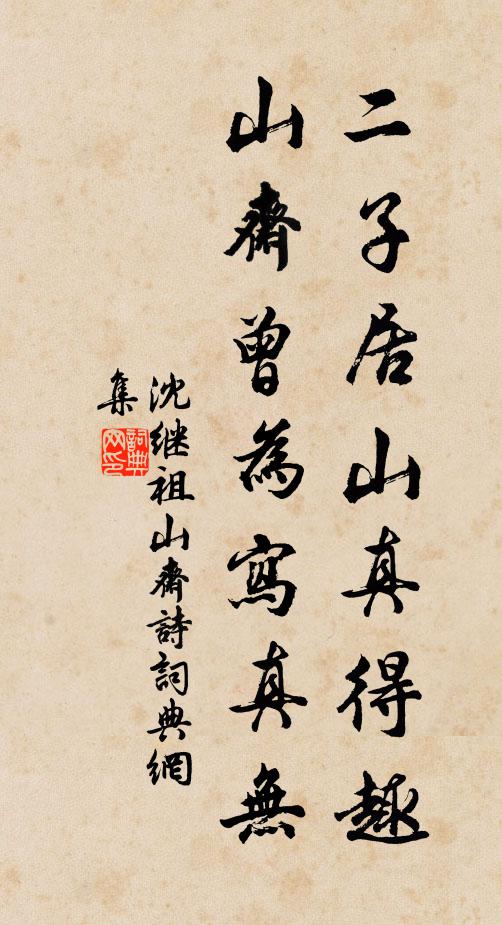 二子居山真得趣
山齋曾為寫真無
沈继祖山齋詩詞典網
集
詞典網印